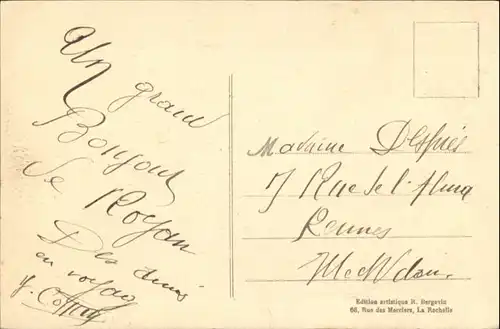 Un grand
Bonjour
de Royan
Des amis
en voyage
Madame Després
7 Rue de l'Alma
Rennes
Ille et Vilaine.
Edition artistique R. Bergevin
66, Rue des Merciers, La Rochelle